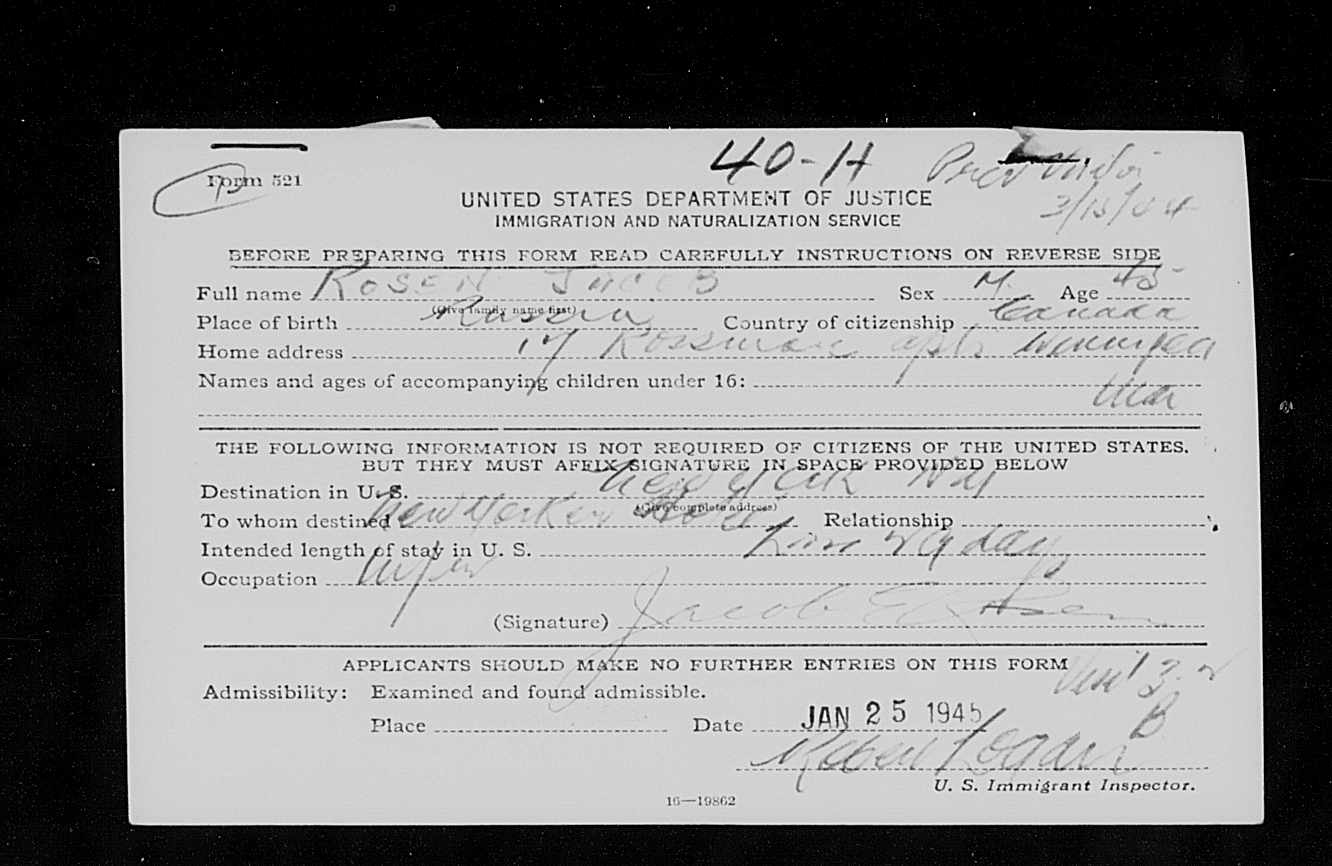 40-H Prior
Form 521
3/15/44
UNITED STATES DEPARTMENT OF JUSTICE
IMMIGRATION AND NATURALIZATION SERVICE
BEFORE PREPARING THIS FORM READ CAREFULLY INSTRUCTIONS ON REVERSE SIDE
Full name ROSEN JACOB Sex M. Age 45
(Give family name first)
Place of birth Russia Country of citizenship Canada
Home address 17 Rossmore apts Winnipeg
Names and ages of accompanying children under 16:
Man
THE FOLLOWING INFORMATION IS NOT REQUIRED OF CITIZENS OF THE UNITED STATES,
BUT THEY MUST AFFIX SIGNATURE IN SPACE PROVIDED BELOW
Destination in U. S. New York NY
(Give complete address)
To whom destined New Yorker Hotel Relationship
Intended length of stay in U. S. days
Occupation
(Signature) Jacob Rosen
APPLICANTS SHOULD MAKE NO FURTHER ENTRIES ON THIS FORM
Admissibility: Examined and found admissible. 3-2
Place Date JAN 25 1945 B
Robert Logan
U. S. Immigrant Inspector.
16—19862